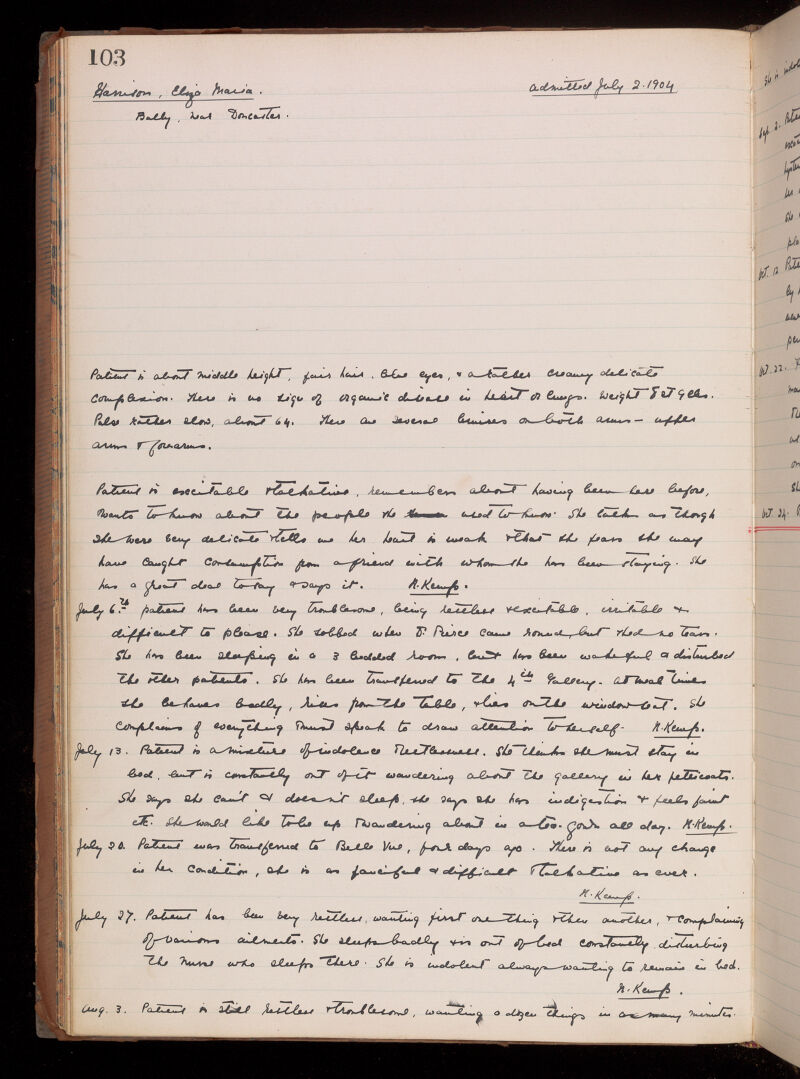 103
Harrison, Eliza Maria.
admitted July 2. 1904
Balby, near Doncaster.
Patient is about middle height, fair hair, blue eyes, & a rather creamy delicate
complexion. There is no sign of organic disease in heart or lungs. Weight 8 st 9 lbs.
Pulse rather slow, about 64. There are several bruises on both arms – upper
arms & forearms.
Patient is excitable & talkative, remembers about having been here before,
wants to know about the people she used to know. She talks as though
she were very delicate & tells me her heart is weak & that she fears she may
have caught consumption from a friend with whom she has been staying. She
has a great deal to say & says it. N. Kemp.
July 6th. patient has been very troublesome, being restless & excitable, irritable &
difficult to please. She sobbed when Dr Pierce came round, but shed no tears.
She has been sleeping in a 3 bedded room, but has been wakeful & disturbed
the other patients. She has been transferred to the 4th Gallery. At meal times
she behaves badly, rises from the table, & lies on the window seat. She
complains of everything & must speak to draw attention to herself. N. Kemp.
July 13. Patient is a mixture of indolence & restlessness. She thinks she must stay in
bed, but is constantly out of it wandering about the gallery in her petticoats.
She says she can't & doesn't sleep, she says she has indigestion & feels faint
etc. She would like to be up & wandering about in a tea-gown all day. N. Kemp.
July 20. Patient was transferred to Belle Vue, four days ago. There is not any change
in her condition, she is as fanciful & difficult & talkative as ever.
N. Kemp.
July 27. Patient has been very restless, wanting first one thing & then another, & complaining
of various ailments. She sleeps badly & is out of bed constantly disturbing
the nurse who sleeps there. She is indolent always wanting to remain in bed.
N. Kemp.
Aug. 3. Patient is still restless & troublesome, wanting a dozen things in as many minutes.
She is indol
Sep. 2. Patie
her
She
Oct. 12. Patie
by
Oct. 22.
Oct. 24.